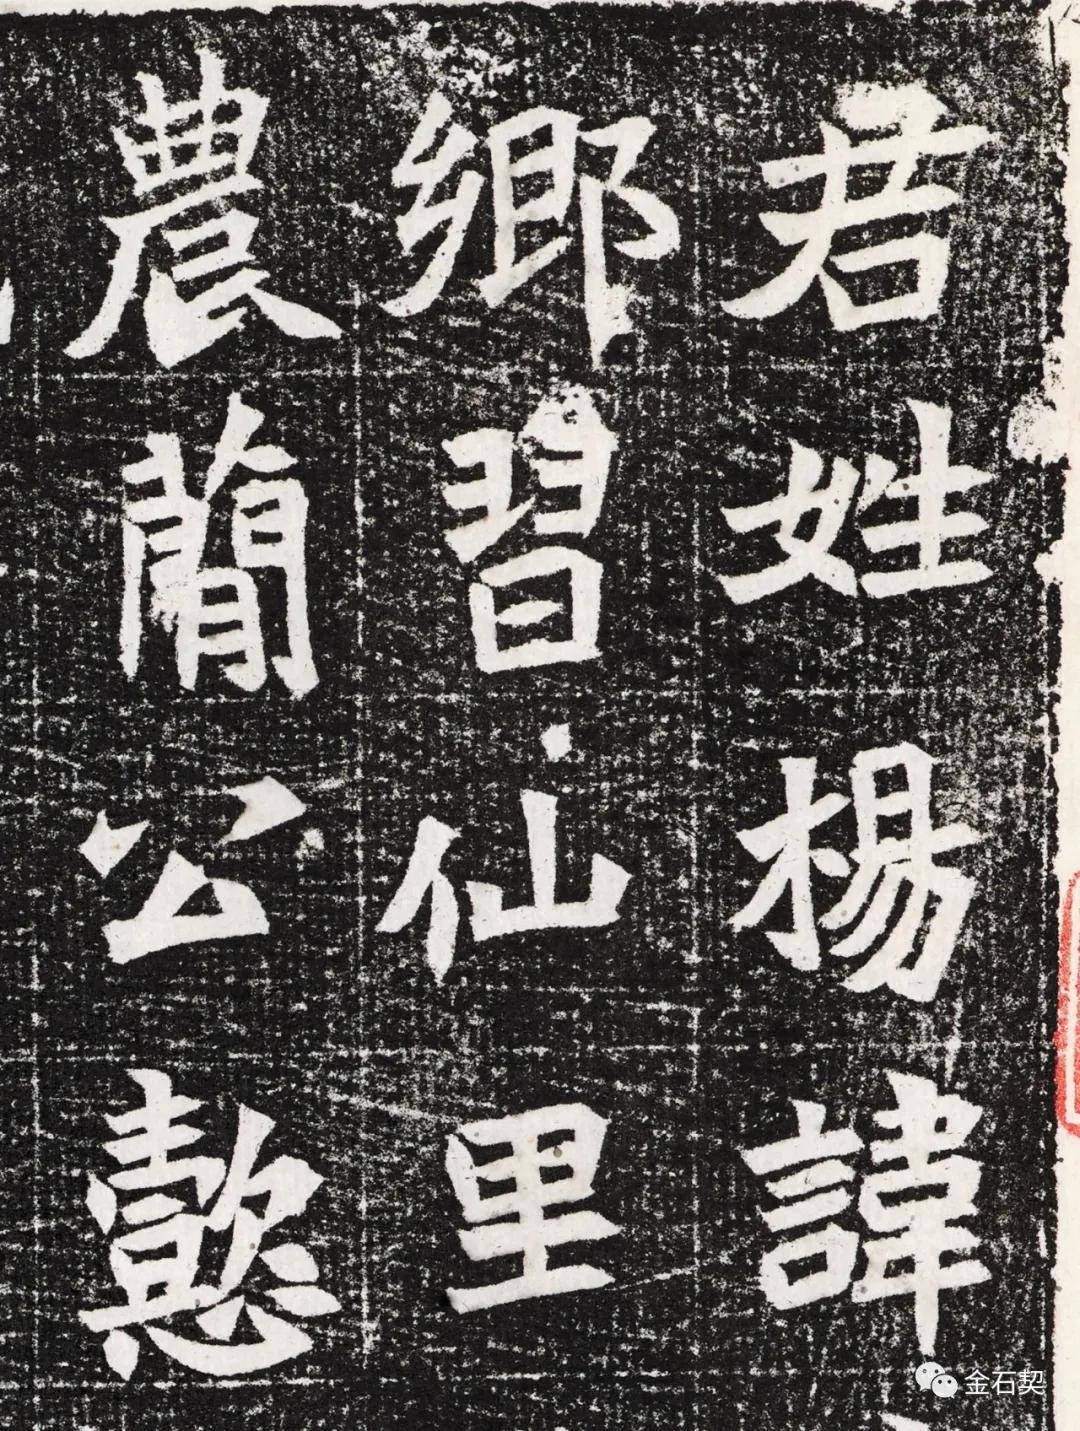 君姓楊諱
鄉習仙里
農簡公懿
金石契